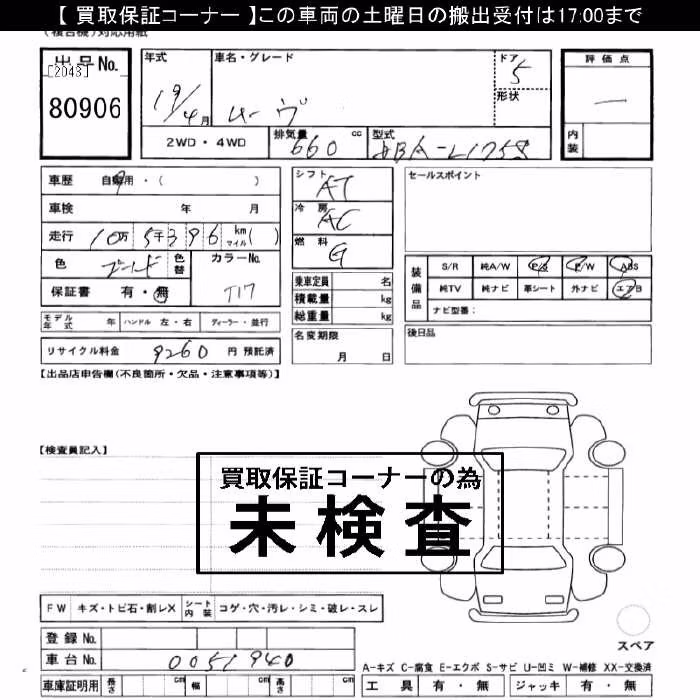 【 買取保証コーナー 】この車両の土曜日の搬出受付は17:00まで
(複合機)対応用紙
出品No.
[2043]
80906
年式
19/4月
車名・グレード
ムーヴ
ドア
5
形状
評価点
—
内装
2WD・4WD
排気量
660 cc
型式
DBA-L175S
車歴 自家用・( )
車検 年 月
走行 10万5千396 km マイル( )
色 ゴールド 色替
カラーNo.
T17
保証書 有・無
モデル年式 年 ハンドル 左・右 ディーラー・並行
リサイクル料金 9260 円 預託済
シフト
AT
冷房
AC
燃料
G
乗車定員 名
積載量 kg
総重量 kg
名変期限
月 日
セールスポイント
装備品
S/R 純A/W P/S P/W ABS
純TV 純ナビ 革シート 外ナビ エアB
ナビ型番:
後日品
【出品店申告欄(不良箇所・欠品・注意事項等)】
【検査員記入】
買取保証コーナーの為
未検査
FW キズ・トビ石・割レX シート内装 コゲ・穴・汚レ・シミ・破レ・スレ
登録No.
車台No. 0051940
車庫証明用 長さ cm 幅 cm 高さ cm
スペア
A-キズ C-腐食 E-エクボ S-サビ U-凹ミ W-補修 XX-交換済
工具 有・無 ジャッキ 有・無